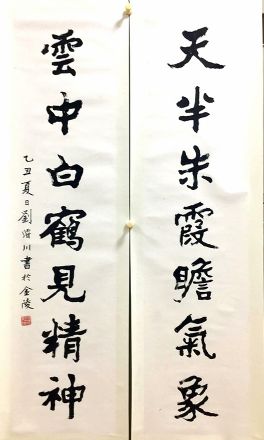 天半朱霞瞻氣象
雲中白鶴見精神
乙丑夏日劉濬川書於金陵